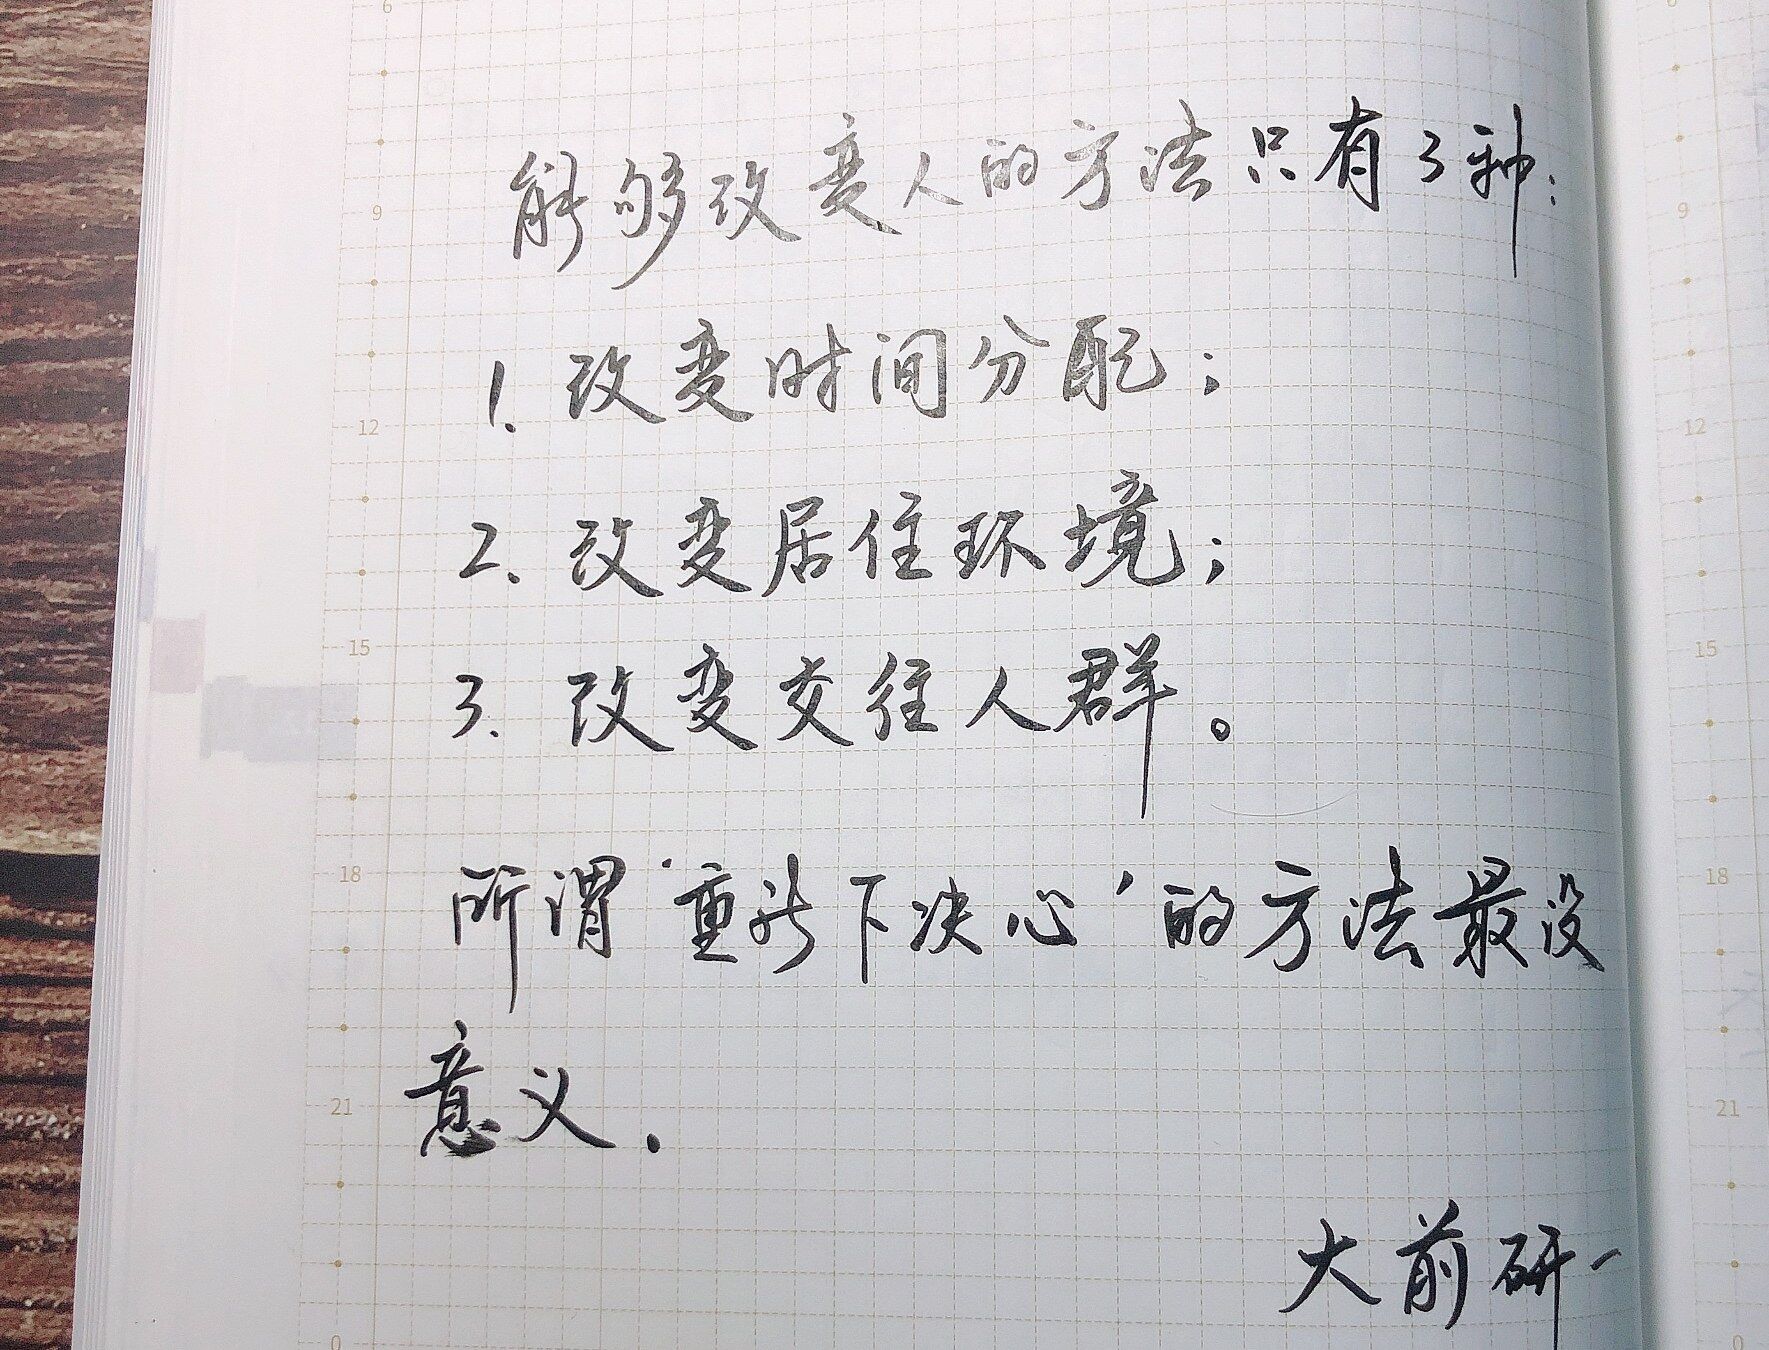 能够改变人的方法只有3种:
1. 改变时间分配;
2. 改变居住环境;
3. 改变交往人群。
所谓'重新下决心'的方法最没
意义.
大前研一
6
9
12
15
18
21
0
6
9
12
15
18
21
0